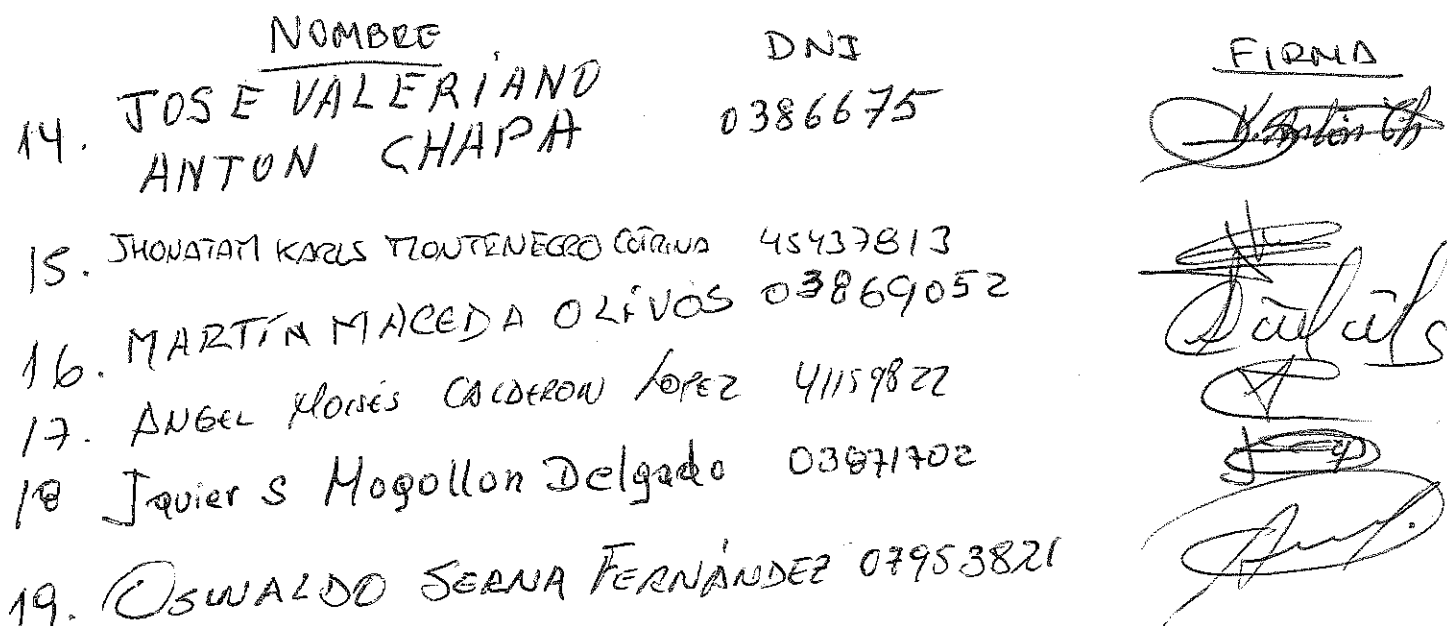 NOMBRE DNI FIRMA
JOSE VALERIANO
14. ANTON CHAPA 0386675 V. Anton Ch
15. JHONATAM KARLS MONTENEGRO COTRINA 45437813
16. MARTÍN MACEDA OLÍVOS 03869052
17. ANGEL MOISÉS CALDERON LOPEZ 41159822
18 Javier S Mogollon Delgado 03871702
19. OSWALDO SERNA FERNÁNDEZ 07953821